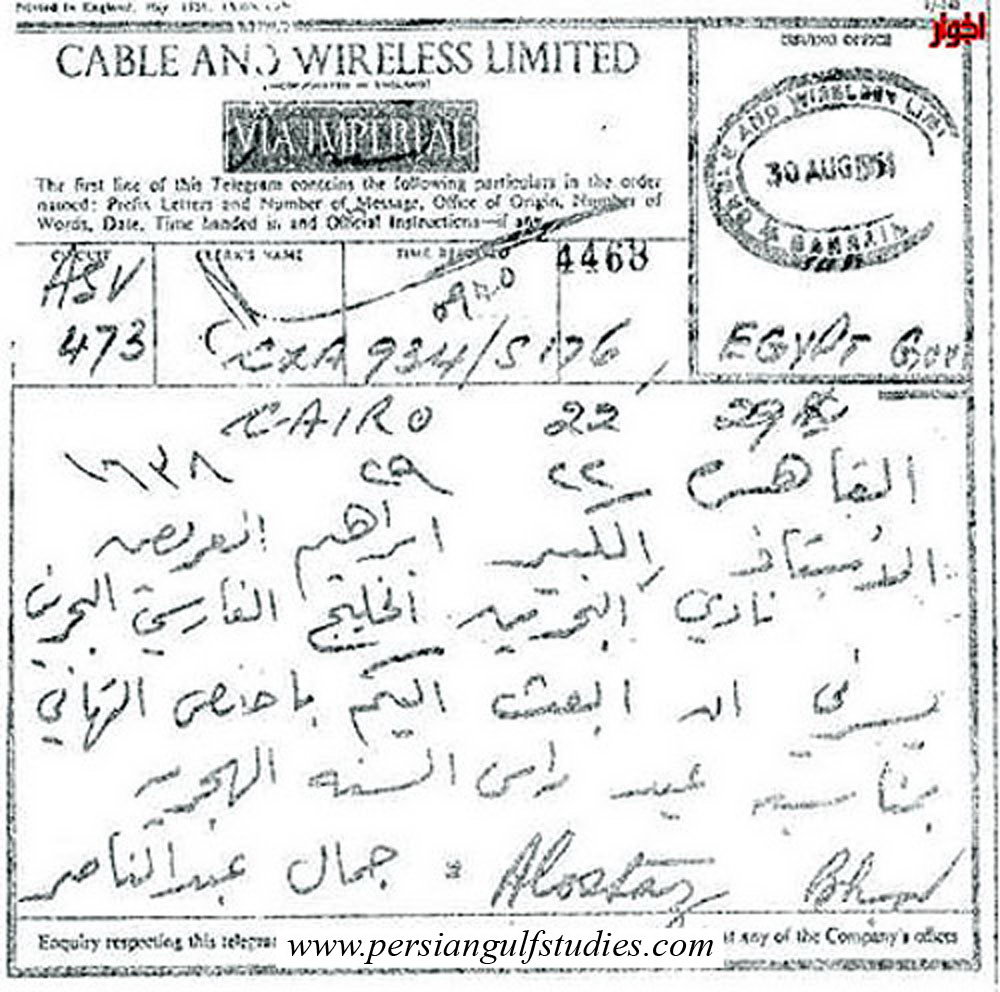 Printed in England. May
اخواز
CABLE AND WIRELESS LIMITED
(INCORPORATED IN ENGLAND)
VIA IMPERIAL
The first line of this Telegram contains the following particulars in the order
named: Prefix Letters and Number of Message, Office of Origin, Number of
Words, Date, Time handed in and Official Instructions—if any
ISSUING OFFICE
CABLE AND WIRELESS LIMITED
30 AUG 195
BAHRAIN
CIRCUIT
CLERK'S NAME
TIME RECEIVED
4468
ASV
473
CXA 934/S176
EGYPT Govt
CAIRO 22 29
القاهره ٢٢ ٢٩ ١٦٣٨
الاستاذ الكبير ابراهيم العريض
نادي البحرين الخليج الفارسي البحرين
يسرني ان ابعث اليكم باخلص التهاني
بمناسبه عيد راس السنه الهجريه
جمال عبدالناصر =
Alostaz
Enquiry respecting this telegram
at any of the Company's offices
www.persiangulfstudies.com